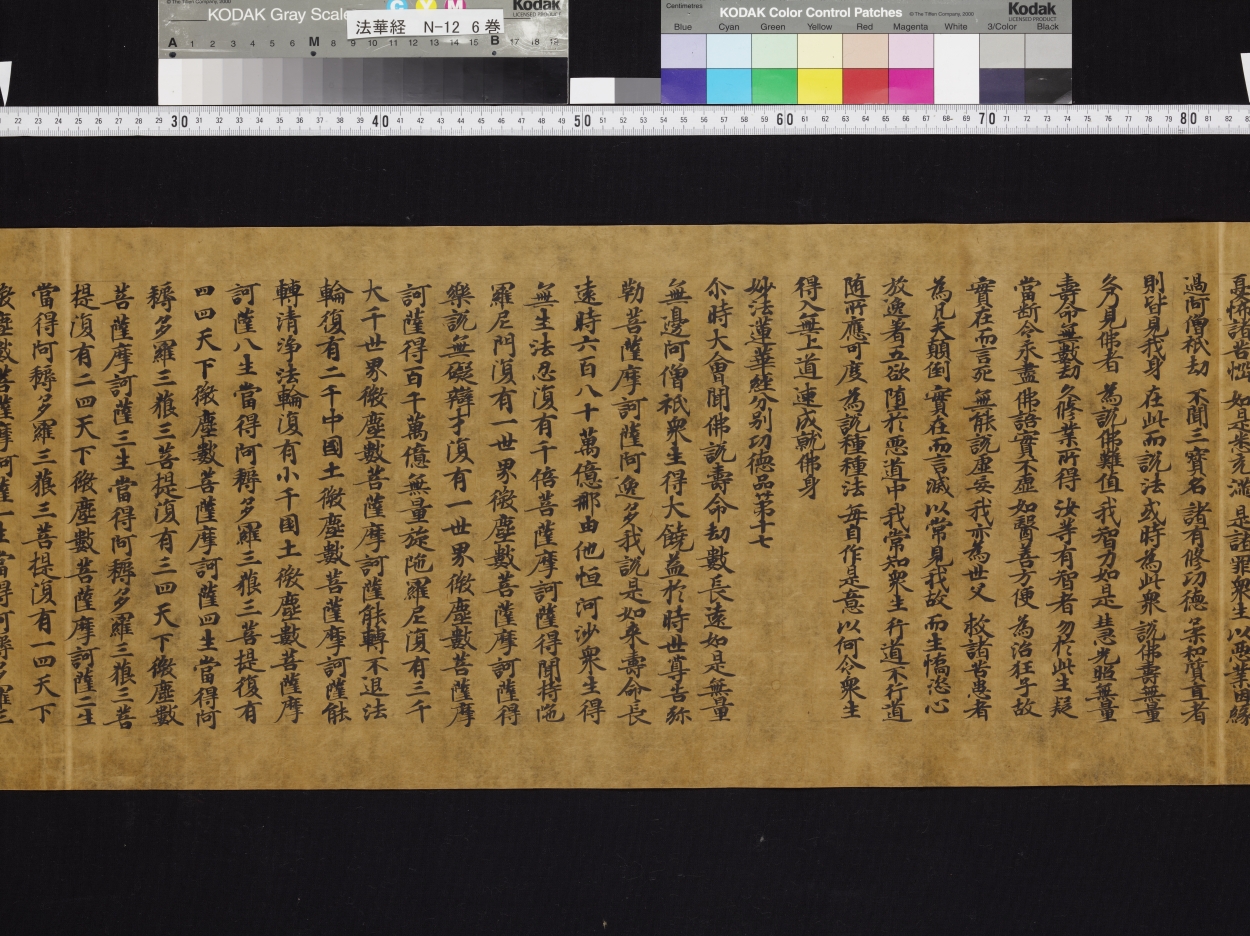 © The Tiffen Company, 2000
KODAK Gray Scale
C Y M
Kodak
LICENSED PRODUCT
法華経 N-12 6巻
A 1 2 3 4 5 6 M 8 9 10 11 12 13 14 15 B 17 18 19
Centimetres
KODAK Color Control Patches
© The Tiffen Company, 2000
Kodak
LICENSED PRODUCT
Blue Cyan Green Yellow Red Magenta White 3/Color Black
22 23 24 25 26 27 28 29 30 31 32 33 34 35 36 37 38 39 40 41 42 43 44 45 46 47 48 49 50 51 52 53 54 55 56 57 58 59 60 61 62 63 64 65 66 67 68 69 70 71 72 73 74 75 76 77 78 79 80 81 82
憂怖諸苦惱 如是悉充滿 是諸罪衆生 以惡業因緣
過阿僧祇劫 不聞三寶名 諸有修功德 柔和質直者
則皆見我身 在此而說法 或時為此衆 說佛壽無量
久乃見佛者 為說佛難值 我智力如是 慧光照無量
壽命無數劫 久修業所得 汝等有智者 勿於此生疑
當斷令永盡 佛語實不虛 如醫善方便 為治狂子故
實在而言死 無能說虛妄 我亦為世父 救諸苦患者
為凡夫顛倒 實在而言滅 以常見我故 而生憍恣心
放逸著五欲 墮於惡道中 我常知衆生 行道不行道
隨所應可度 為說種種法 每自作是意 以何令衆生
得入無上道 速成就佛身
妙法蓮華經分別功德品第十七
尒時大會聞佛說壽命劫數長遠如是無量
無邊阿僧祇衆生得大饒益於時世尊告弥
勒菩薩摩訶薩阿逸多我說是如來壽命長
遠時六百八十萬億那由他恒河沙衆生得
無生法忍復有千倍菩薩摩訶薩得聞持陁
羅尼門復有一世界微塵數菩薩摩訶薩得
樂說無礙辯才復有一世界微塵數菩薩摩
訶薩得百千萬億無量旋陁羅尼復有三千
大千世界微塵數菩薩摩訶薩能轉不退法
輪復有二千中國土微塵數菩薩摩訶薩能
轉清淨法輪復有小千国土微塵數菩薩摩
訶薩八生當得阿耨多羅三藐三菩提復有
四四天下微塵數菩薩摩訶薩四生當得阿
耨多羅三藐三菩提復有三四天下微塵數
菩薩摩訶薩三生當得阿耨多羅三藐三菩
提復有二四天下微塵數菩薩摩訶薩二生
當得阿耨多羅三藐三菩提復有一四天下
微塵數菩薩摩訶薩一生當得阿耨多羅三